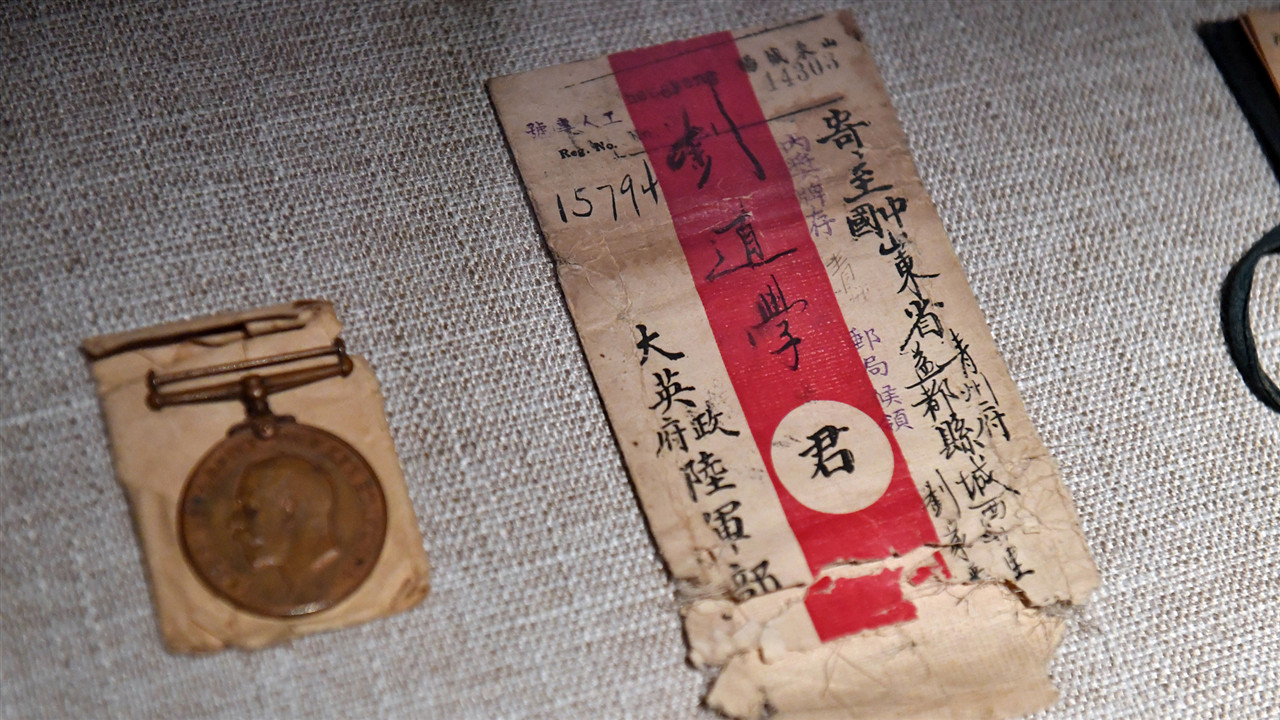 14303
寄至中國山東省青州府益都縣城西
內獎牌存青
郵局候領
劉道學君
工人
Reg. No.
15794
大英政府陸軍部